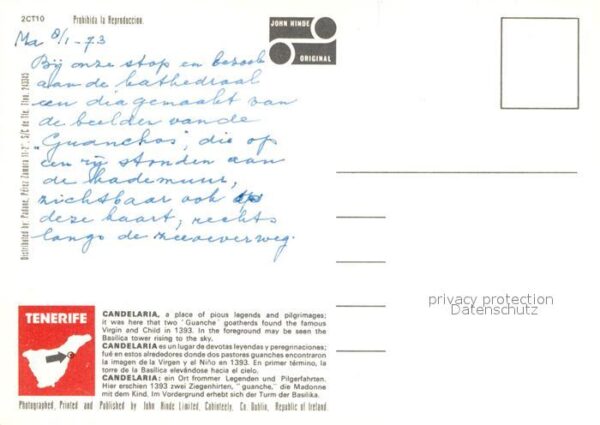 2CT10
Prohibida la Reproduccion.
JOHN HINDE
ORIGINAL
Ma 8/1-73
Bij onze stop en bezoek
aan de kathedraal
een dia gemaakt van
de beelden van de
"Guanchos", die op
een rij stonden aan
de kademuur,
zichtbaar ook op
deze kaart; rechts
langs de zeeoeverweg.
Distributed by: Padane, Pérez Zamora 11-2°, S/C de Tfe. Tfno.
privacy protection
Datenschutz
TENERIFE
CANDELARIA, a place of pious legends and pilgrimages;
it was here that two "Guanche" goatherds found the famous
Virgin and Child in 1393. In the foreground may be seen the
Basilica tower rising to the sky.
CANDELARIA es un lugar de devotas leyendas y peregrinaciones;
fué en estos alrededores donde dos pastores guanches encontraron
la imagen de la Virgen y el Niño en 1393. En primer término, la
torre de la Basilica elevándose hacia el cielo.
CANDELARIA: ein Ort frommer Legenden und Pilgerfahrten.
Hier erschien 1393 zwei Ziegenhirten, "guanche," die Madonne
mit dem Kind. Im Vordergrund erhebt sich der Turm der Basilika
Photographed, Printed and Published by John Hinde Limited, Cabinteely, Co. Dublin, Republic of Ireland.